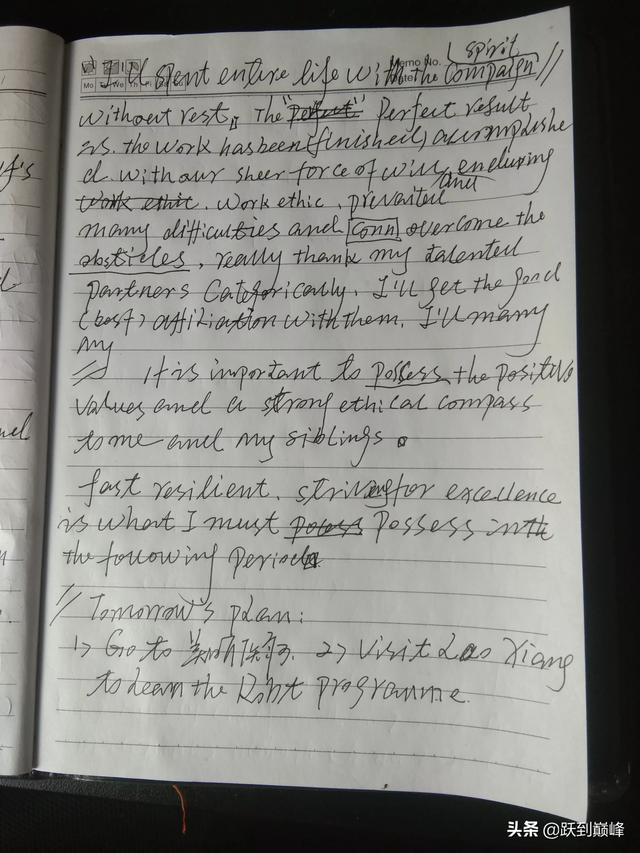 Memo No.
Mo Tu We Th Fri
spirit
I'll spent entire life with the compaign //
without rest. The "perfect" Perfect result
is. the work has been (finished) accomplishe
d without sheer force of will, enduring
and
work ethic. work ethic, prevailed
many difficulties and conn overcome the
obsticles, really thank my talented
partners Categorically. I'll get the good
(best) affiliation with them. I'll many
my
// It is important to possess the positive
values and a strong ethical compass
to me and my siblings.
fast resilient. striving for excellence
is what I must possess in th
the following period
// Tomorrow's plan:
1> Go to 2> Visit Lao Xiang
to learn the Robot programme.
头条 @跃到巅峰